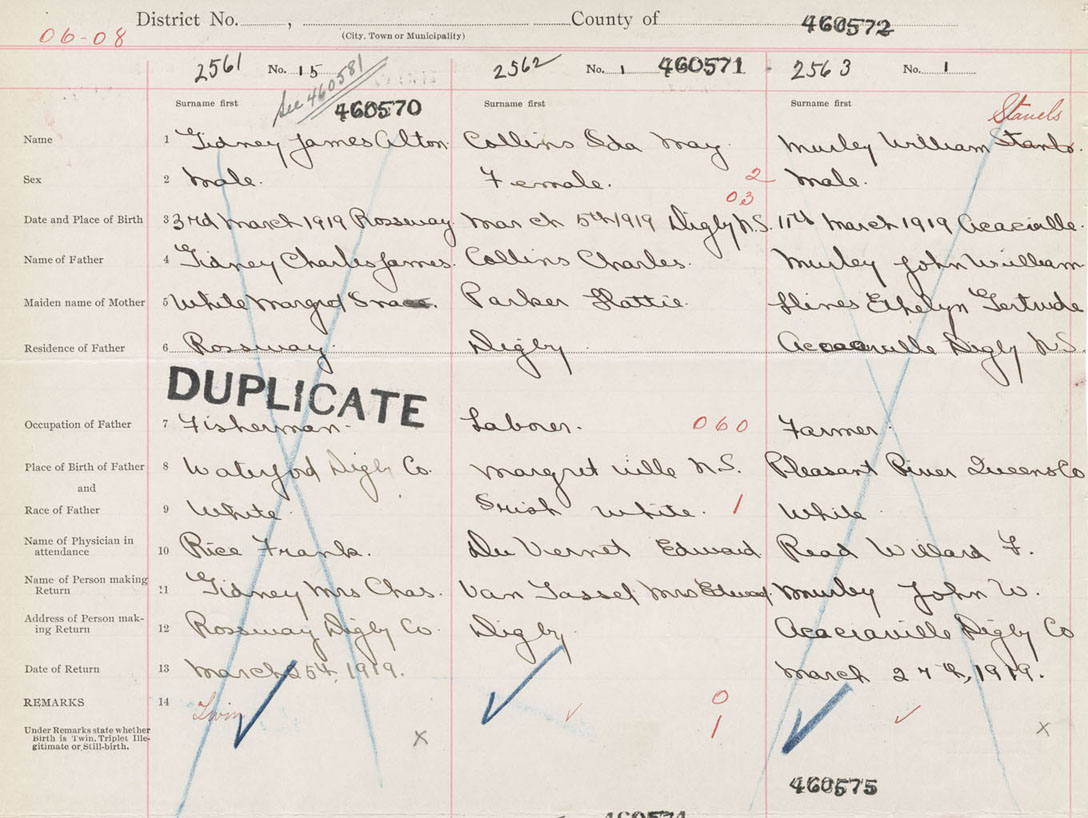 District No. , County of 460572
06-08 (City, Town or Municipality)
2561 No. 15 See 460581 2562 No. 1 460571 2563 No. 1
Surname first 460570 Surname first Surname first Stanels
Name 1 Gidney James Alton. Collins Ida May Murley William
Sex 2 Male. Female. 2 Male.
03
Date and Place of Birth 3 3rd March 1919 Rossway. March 5th 1919 Digby N.S. 11th March 1919 Acaciville.
Name of Father 4 Gidney Charles James. Collins Charles. Murley John William
Maiden name of Mother 5 White Margret Parker Hattie. Hines Ethelyn Gertrude
Residence of Father 6 Rossway. Digby Digby N.S.
DUPLICATE
Occupation of Father 7 Fisherman. Laborer. 060 Farmer.
Place of Birth of Father 8 Waterford Digby Co. Margret ville N.S. Pleasant River Queens Co
and
Race of Father 9 White. Irish White. 1 White.
Name of Physician in
attendance 10 Rice Frank. Du Vernet Edward Read Willard F.
Name of Person making
Return 11 Gidney Mrs Chas. Van Tassel Mrs Edward Murley John W.
Address of Person mak-
ing Return 12 Rossway Digby Co. Digby. Acaciaville Digby Co
Date of Return 13 March 25th, 1919. March 27th, 1919.
REMARKS 14 Twin 0
Under Remarks state whether
Birth is Twin, Triplet Ille-
gitimate or Still-birth. x 1 x
460575
460574